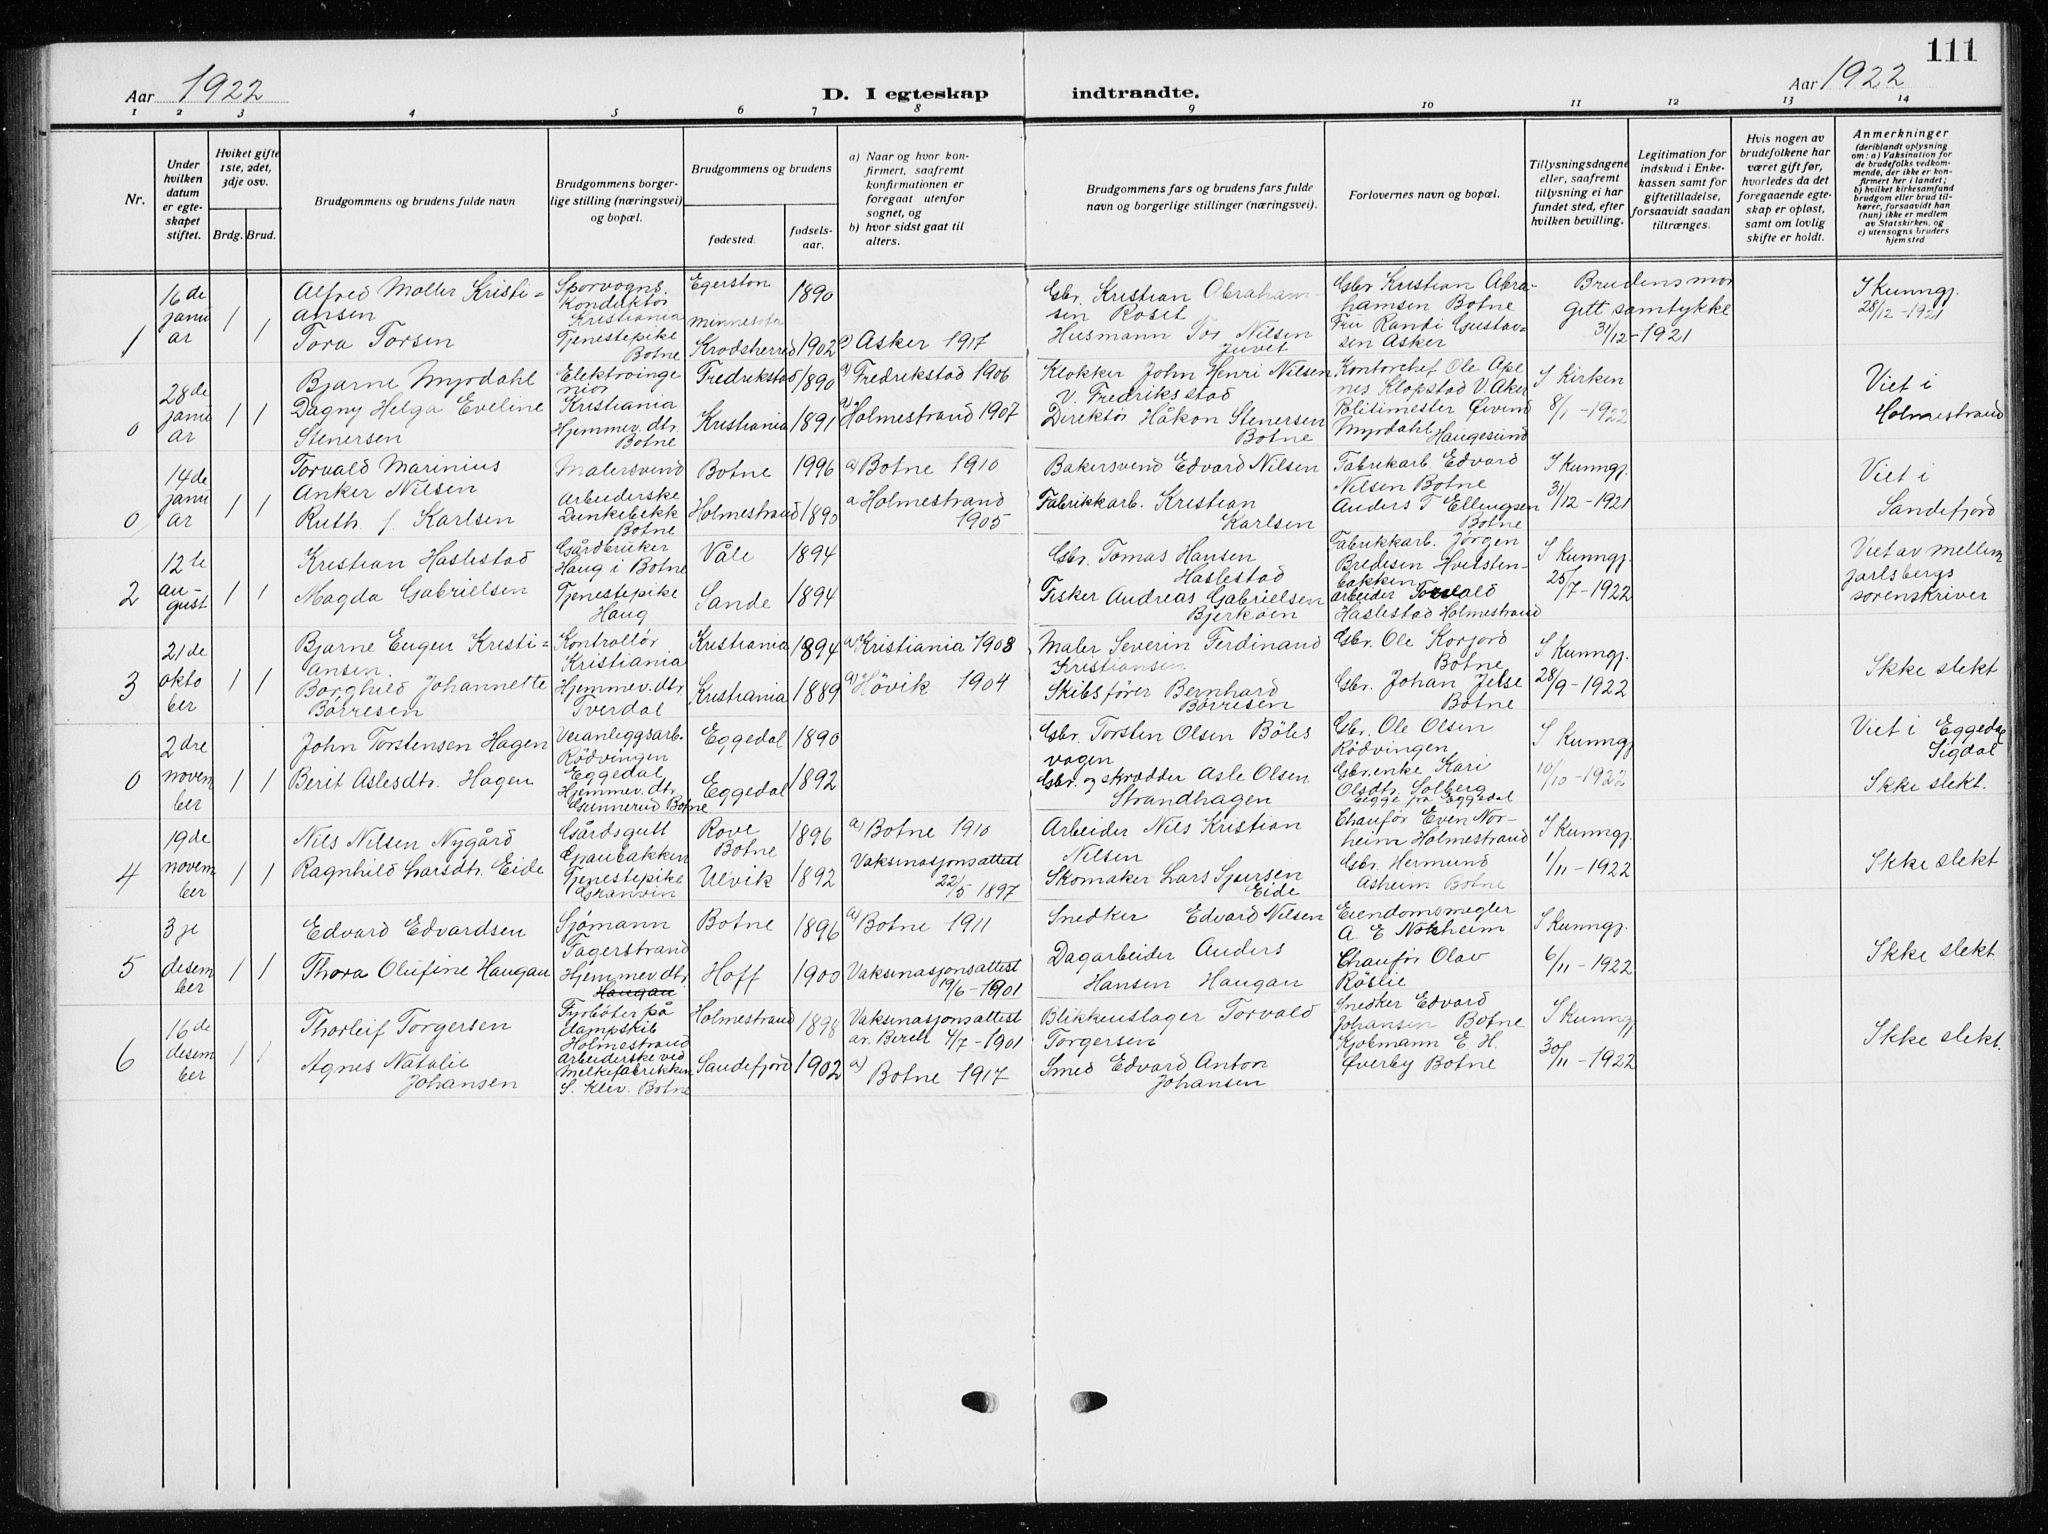 111
Aar 1922
D. I egteskap indtraadte.
Aar 1922
1 2 3 4 5 6 7 8 9 10 11 12 13 14
Nr.
Under
hvilken
datum
er egte-
skapet
stiftet.
Hviket gifte
1ste, 2det,
3dje osv.
Brdg. Brud.
Brudgommens og brudens fulde navn
Brudgommens borger-
lige stilling (næringsvei)
og bopæl.
Brudgommens og brudens
fødested.
fødsels-
aar.
a) Naar og hvor kon-
firmert, saafremt
konfirmationen er
foregaat utenfor
sognet, og
b) hvor sidst gaat til
alters.
Brudgommens fars og brudens fars fulde
navn og borgerlige stillinger (næringsvei).
Forlovernes navn og bopæl.
Tillysningsdagene
eller, saafremt
tillysning ei har
fundet sted, efter
hvilken bevilling.
Legitimation for
indskud i Enke-
kassen samt for
giftetilladelse,
forsaavidt saadan
tiltrænges.
Hvis nogen av
brudefolkene har
været gift før,
hvorledes da det
foregaaende egte-
skap er opløst,
samt om lovlig
skifte er holdt.
Anmerkninger
(deriblandt oplysning
om: a) Vaksination for
de brudefolks vedkom-
mende, der ikke er kon-
firmert her i landet;
b) hvilket kirkesamfund
brudgom eller brud til-
hører, forsaavidt han
(hun) ikke er medlem
av Statskirken, og
c) utensogns bruders
hjemsted
1
16de
janu
ar
1 1
Alfred Møller Kristi-
ansen
Tora Torsen
Sporvogns.
Konduktør
Kristiania
Tjenestepike
Botne
Egerston
Minnesota
Krødsherred
1890
1902
a) Asker 1917
Gbr. Kristian Abraham-
sen Roset
Husmann Tor Nilsen
Juvet
Gbr Kristian Abra-
hamsen Botne
Fru Randi Gustav-
sen Asker
Brudens mor
gitt samtykke
31/12-1921
I Kunngj.
28/12-1921
0
28de
janu
ar
1 1
Bjarne Myrdahl
Dagny Helga Eveline
Stenersen
Elektroinge
niør
Kristiania
Hjemmev. dtr.
Botne
Fredrikstad
Kristiania
1890
1891
a) Fredrikstad 1906
a) Holmestrand 1907
Klokker John Henri Nilsen
V. Fredriksstad
Direktør Håkon Stenersen
Botne
Kontorchef Ole Ape
nes Klopstad V. Aker
Politimester Øivind
Myrdahl Haugesund
I Kirken
8/1-1922
Viet i
Holmestrand
0
14de
janu
ar
1 1
Torvald Marinius
Anker Nilsen
Ruth J. Karlsen
Malersvend
Arbeiderske
Dunkebekk
Botne
Botne
Holmestrand
1996
1890
a) Botne 1910
a Holmestrand
1905
Bakersvend Edvard Nilsen
Fabrikkarb. Kristian
Karlsen
Fabrikarb Edvard
Nilsen Botne
Anders T Ellingsen
Botne
I Kunngj.
31/12-1921
Viet i
Sandefjord
2
12te
au-
gust
1 1
Kristian Haslestad
Magda Gabrielsen
Gårdbruker
Haug i Botne
Tjenestepike
Haug
Våle
Sande
1894
1894
Gbr. Tomas Hansen
Haslestad
Fisker Andreas Gabrielsen
Bjerkøen
Fabrikkarb. Jørgen
Bredesen Hvitsten-
bakken
arbeider Torvald
Haslestad Holmestrand
I Kunngj.
25/7-1922
Viet av mellem
jarlsbergs
sorenskriver
3
21de
okto
ber
1 1
Bjarne Eugen Kristi-
ansen
Borghild Johannette
Børresen
Kontrollør
Kristiania
Hjemmev. dtr.
Tverdal
Kristiania
Kristiania
1894
1889
a) Kristiania 1908
a) Høvik 1904
Maler Severin Ferdinand
Kristiansen
Skibsfører Bernhard
Børresen
Gbr. Ole Korjord
Botne
Gbr. Johan Jelse
Botne
I Kunngj.
28/9-1922
Ikke slekt
0
2dre
novem
ber
1 1
John Torstensen Hagen
Berit Aslesdtr. Hagen
Veianleggsarb.
Rødvingen
Eggedal
Hjemmev. dtr.
Gunnerud Botne
Eggedal
Eggedal
1890
1892
Gbr. Torsten Olsen Böles
vogen
Gbr. og skrædder Asle Olsen
Strandhagen
Gbr. Ole Olsen
Rødvingen
Gbr.enke Kari
Olsdtr. Solberg
Egge fra Eggedal
I Kunngj
10/10-1922
Viet i Eggedal
Sigdal
Ikke slekt.
4
19de
novem
ber
1 1
Nils Nilsen Nygård
Ragnhild Larsdtr. Eide
Gårdsgutt
Graubakken
Tjenestepike
Granvin
Rove
Botne
Ulvik
1896
1892
a) Botne 1910
Vaksinasjonsattest
22/5 1897
Arbeider Nils Kristian
Nilsen
Skomaker Lars Sjursen
Eide
Chaufør Even Nor-
heim Holmestrand
Gbr. Hermund
Asheim Botne
I Kunngj.
1/11-1922
Ikke slekt
5
3je
desem
ber
1 1
Edvard Edvardsen
Thora Olufine Haugan
Sjømann
Fagerstrand
Hjemmev. dtr
Haugan
Botne
Hoff
1896
1900
a) Botne 1911
Vaksinasjonsattest
19/6-1901
Snedker Edvard Nilsen
Dagarbeider Anders
Hansen Haugan
Eiendomsmegler
A. E Norheim
Chaufør Olav
Røslie
I Kunngj.
6/11-1922
Ikke slekt
6
16de
desem
ber
1 1
Thorleif Torgersen
Agnes Natalie
Johansen
Fyrbøter på
dampskib
Holmestrand
Arbeiderske ved
Melkefabrikken
S. Klev. Botne
Holmestrand
Sandefjord
1898
1902
Vaksinasjonsattest
av. Berch 4/7-1901
a) Botne 1917
Blikkenslager Torvald
Torgersen
Smed Edvard Anton
Johansen
Snedker Edvard
Johansen Botne
Kjøbmann E. H.
Øverby Botne
I Kunngj
30/11-1922
Ikke slekt.